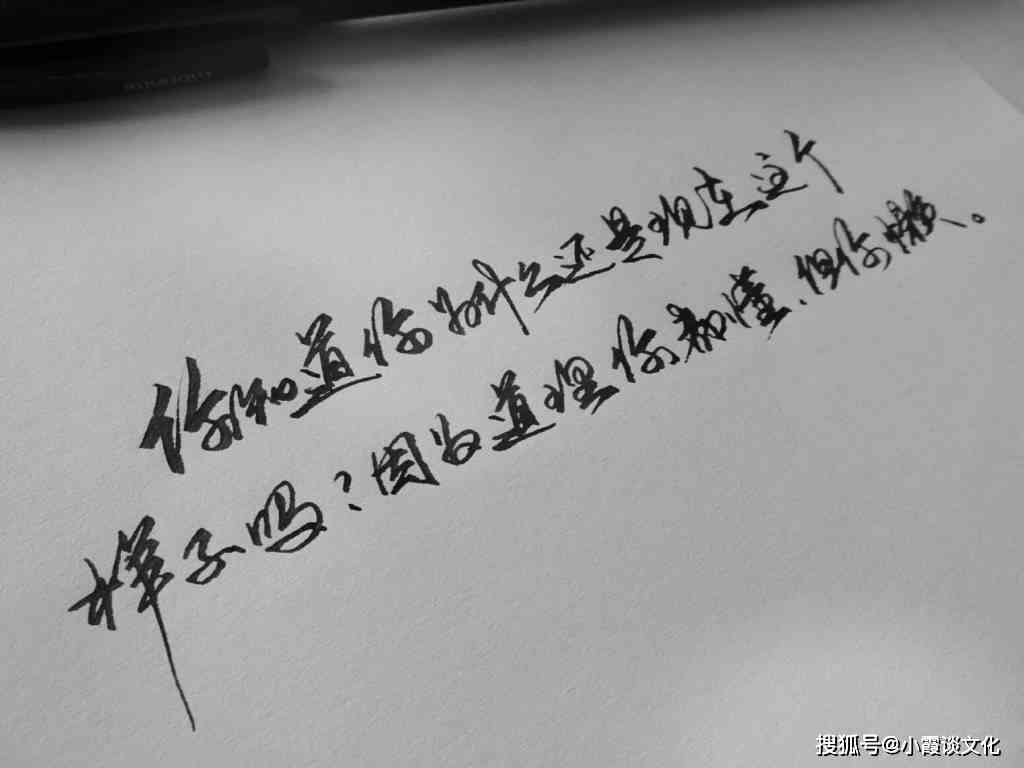 你知道你为什么还是现在这个
样子吗？因为道理你都懂、但你懒。
搜狐号@小霞谈文化